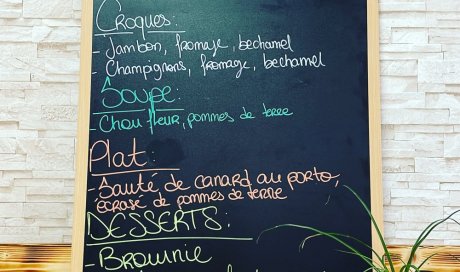 Croques:
- Jambon, fromage, bechamel
- Champignons, fromage, bechamel
Soupe:
- Chou fleur, pommes de terre
Plat:
- Sauté de canard au porto,
écrasé de pommes de terre
DESSERTS:
- Brownie